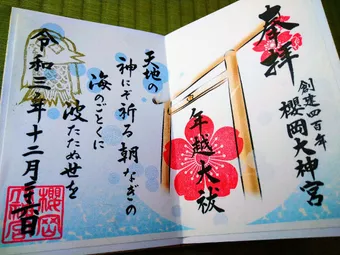 奉拝
創建四百年
櫻岡大神宮
年越大祓
天地の
神にぞ祈る朝なぎの
海のごとくに
波たたぬ世を
令和三年十二月三十一日
櫻岡